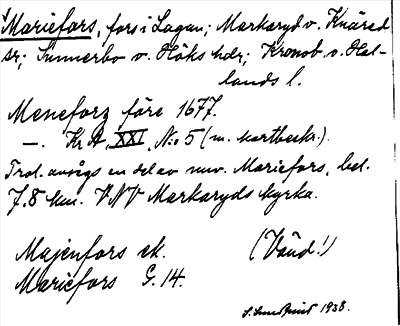 Mariefors, fors i Lagan; Markaryd v. Knäred
sr; Sunnerbo v. Höks hdr; Kronob. v. Hal-
lands l.
Meneforz före 1677.
—. Kr.A. XXI. N:o 5 (m. kartbeskr.).
Trol. avsågs en del av nuv. Mariefors, bel.
7.8 km. VNV Markaryds kyrka.
Majenfors ek. (Vänd!)
Mariefors G. 14.
S. Sundquist 1938.